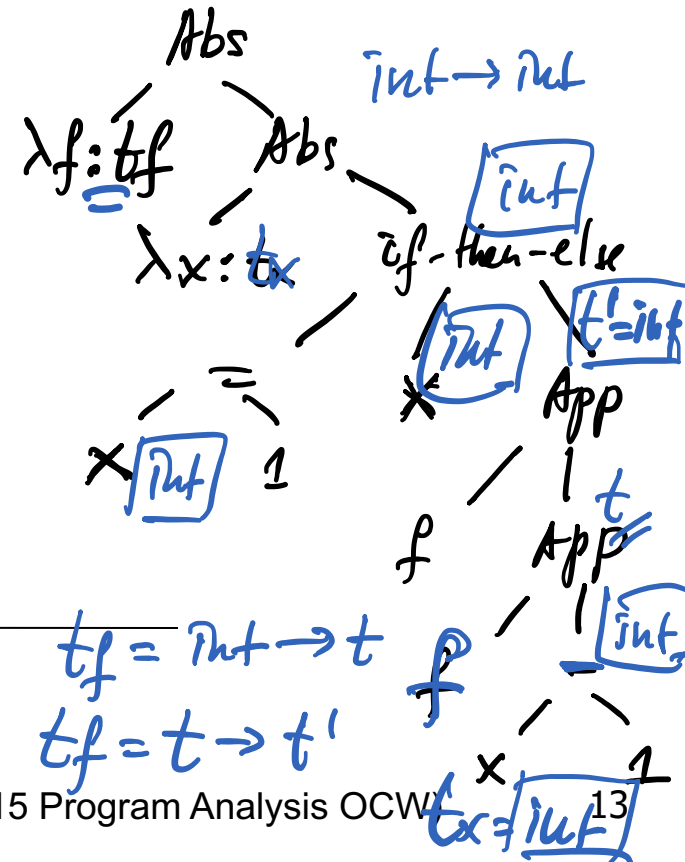 Abs
int → int
λf : tf
Abs
int
λx : tx
if-then-else
=
int
t' = int
x
App
x
int
1
f
App
t
int
tf = int → t
f
-
tf = t → t'
x
1
15 Program Analysis OCW)
tx = int
13